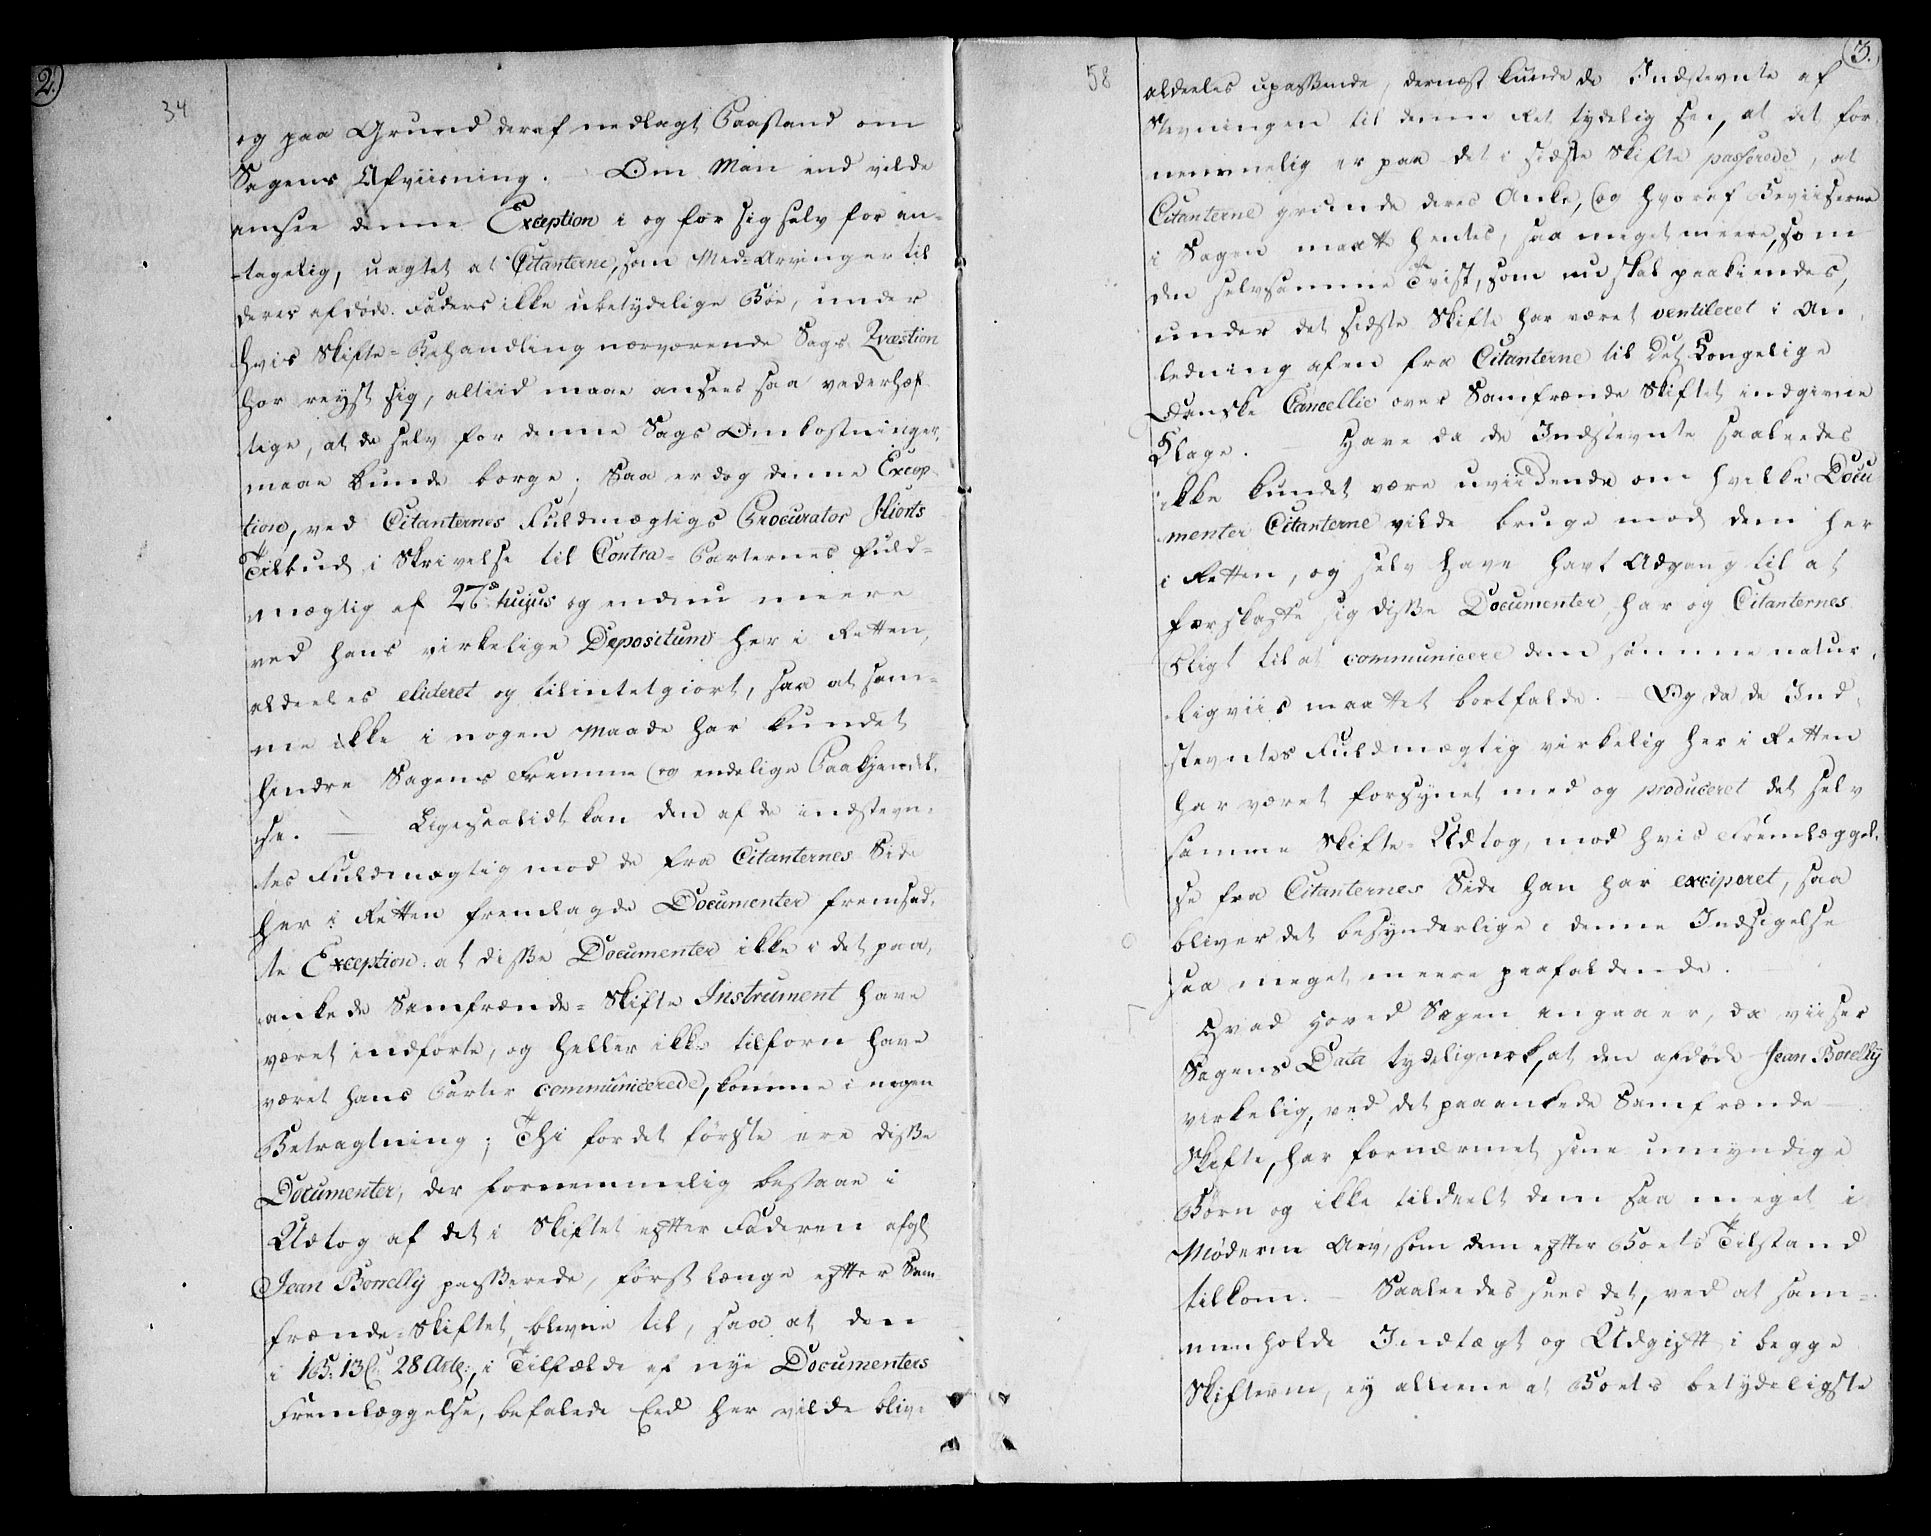 2.
34
og paa Grund deraf nedlagt Paastand om
Sagens Afviisning. — Om Man end vilde
ansee denne Exception i og for sig selv for an-
-tagelig, uagtet at Citanterne, som Med-Arvinger til
deres afdøde Faders ikke ubetydelige Boe, under
hvis Skifte-Behandling nærværende Sags Qvæstion
har reyst sig, altiid maae ansees saa vederhæf-
tige, at de selv for denne Sags Omkostninger,
maae kunde borge; Saa er dog denne Excep-
tion, ved Citanternes Fuldmægtigs Procurator Hiorts
Tilbud i Skrivelse til Contra-Parternes Fuld-
mægtig af 27de hujus og endnu meere
ved hans virkelige Depositum her i Retten,
aldeeles elideret og tilintetgiort, saa at sam-
me ikke i nogen Maade har kundet
hindre Sagens Fremme og endelige Paakjendel-
se. — Ligesaalidt kan den af de indstevn-
tes Fuldmægtig mod de fra Citanternes Side
her i Retten fremlagde Documenter fremsad-
te Exception at disse Documenter ikke i det paa-
ankede Samfrænde-Skifte Instrument have
været indførte, og heller ikke tilforn have
været hans Parter communicerede, komme i nogen
Betragtning; Thi for det første ere disse
Documenter, der fornemmelig bestaae i
Udtog af det i Skiftet efter Faderen afgl
Jean Borrelly passerede, først længe efter Sam-
frænde-Skiftet, blevne til, saa at den
i 1 B. 13 C. 28 Art:, i Tilfælde af nye Documenters
Fremlæggelse, befalede Eed her vilde blive
3.
58
aldeeles upassende, dernæst kunde de Indstevnte af
Stevningen til denne Ret tydelig see, at det for-
nemmelig er paa det i sidste Skifte passerede, at
Citanterne grunde deres Anke, og hvoraf Beviiserne
i Sagen maatte hentes, saa meget meere, som
den selvsamme Tvist, som nu skal paakiendes,
under det sidste Skifte har været ventileret i An-
ledning af en fra Citanterne til Det Kongelige
Danske Cancellie over Samfrænde Skiftet indgivne
Klage. — Have da de Indstevnte saaleedes
ikke kundet være uviidende om hvilke Docu
menter Citanterne vilde bruge mod dem her
i Retten, og selv have havt Adgang til at
forskaffe sig disse Documenter, har og Citanternes
Pligt til at communicere dem samme natur-
ligviis maattet bortfalde. — Og da de Ind-
stevntes Fuldmægtig virkelig her i Retten
har været forsynet med og produceret det selv
samme Skifte-Udtog, mod hvis Fremlæggel-
se fra Citanternes Side han har exciperet, saa
bliver det besynderlige i denne Indsigelse
saa meget meere paafaldende.
Hvad Hoved Sagen angaaer, da viiser
Sagens Data tydelig nok, at den afdøde Jean Borelly
virkelig, ved det paaankede Samfrænde
Skifte, har fornærmet sine umyndige
Børn og ikke tildeelt dem saa meget i
Møderne Arv, som dem efter Boets Tilstand
tilkom. — Saaleedes sees det, ved at sam-
menholde Indtægt og Udgift i begge
Skifterne, ey alleene at Boets betydeligste